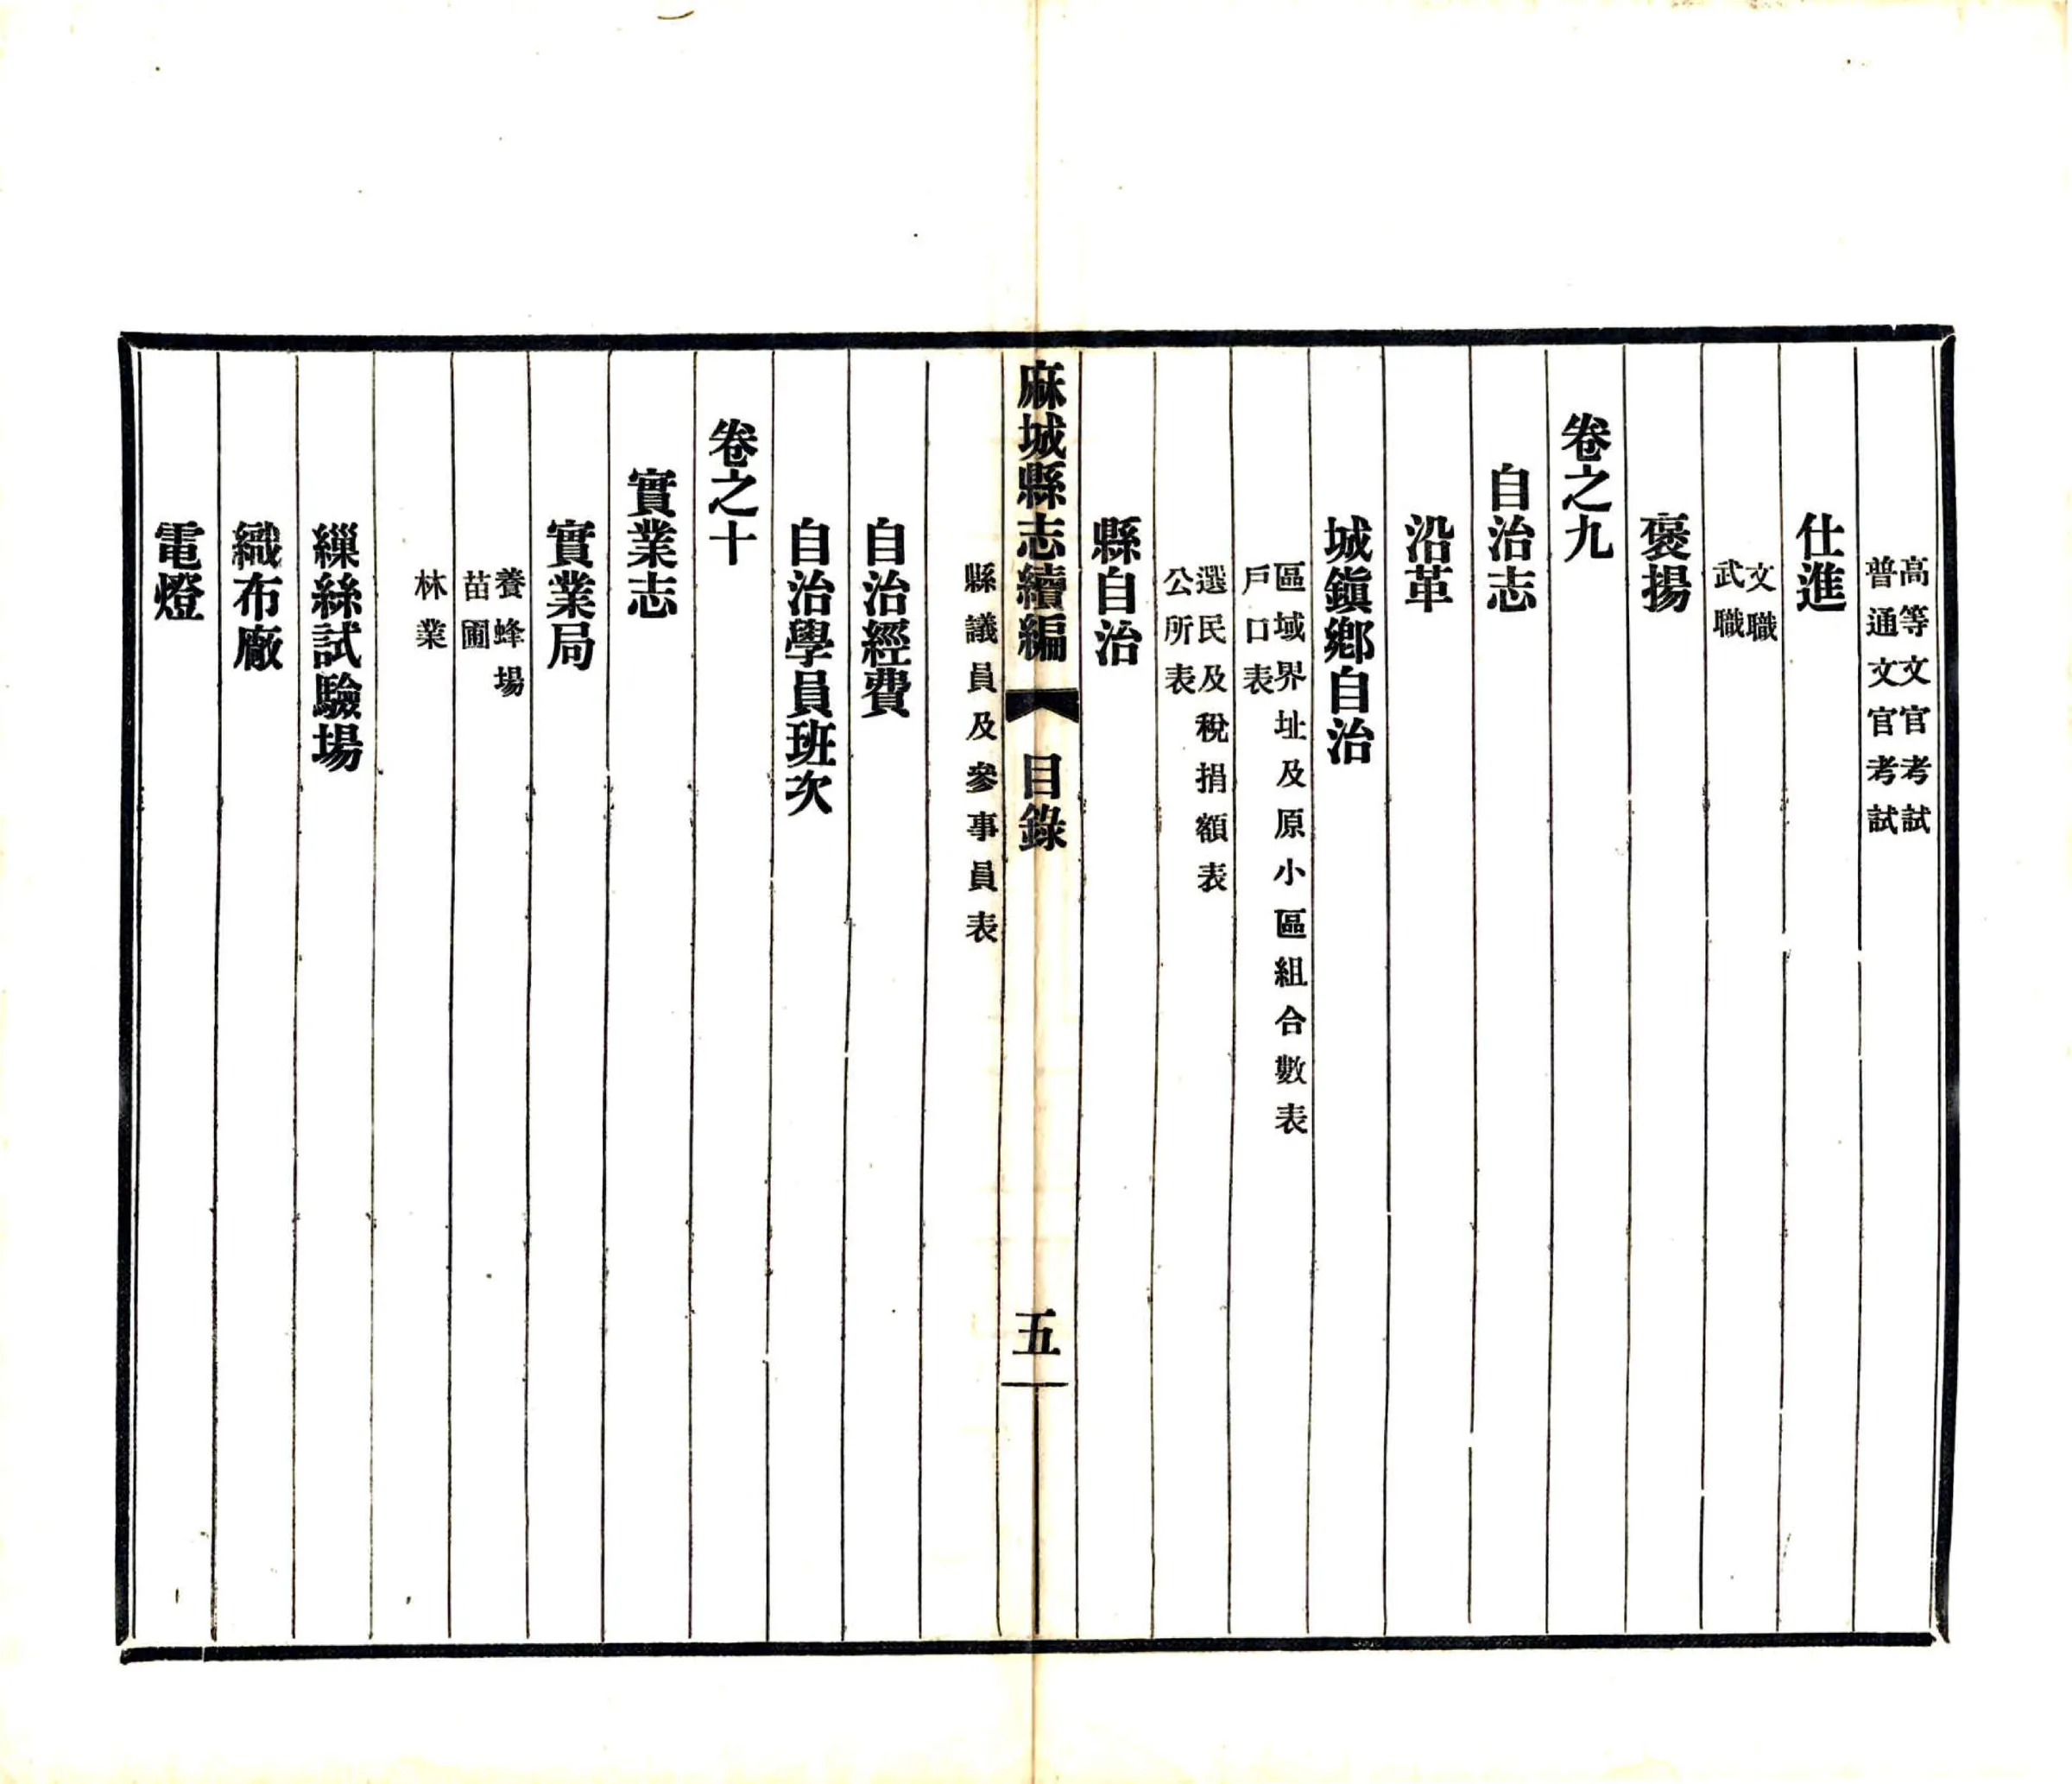 高等文官考試
普通文官考試
仕進
文職
武職
褒揚
卷之九
自治志
沿革
城鎭鄕自治
區域界址及原小區組合數表
戶口表
選民及稅捐額表
公所表
縣自治
麻城縣志續編 目錄 五
縣議員及參事員表
自治經費
自治學員班次
卷之十
實業志
實業局
養蜂場
苗圃
林業
繅絲試驗場
織布廠
電燈